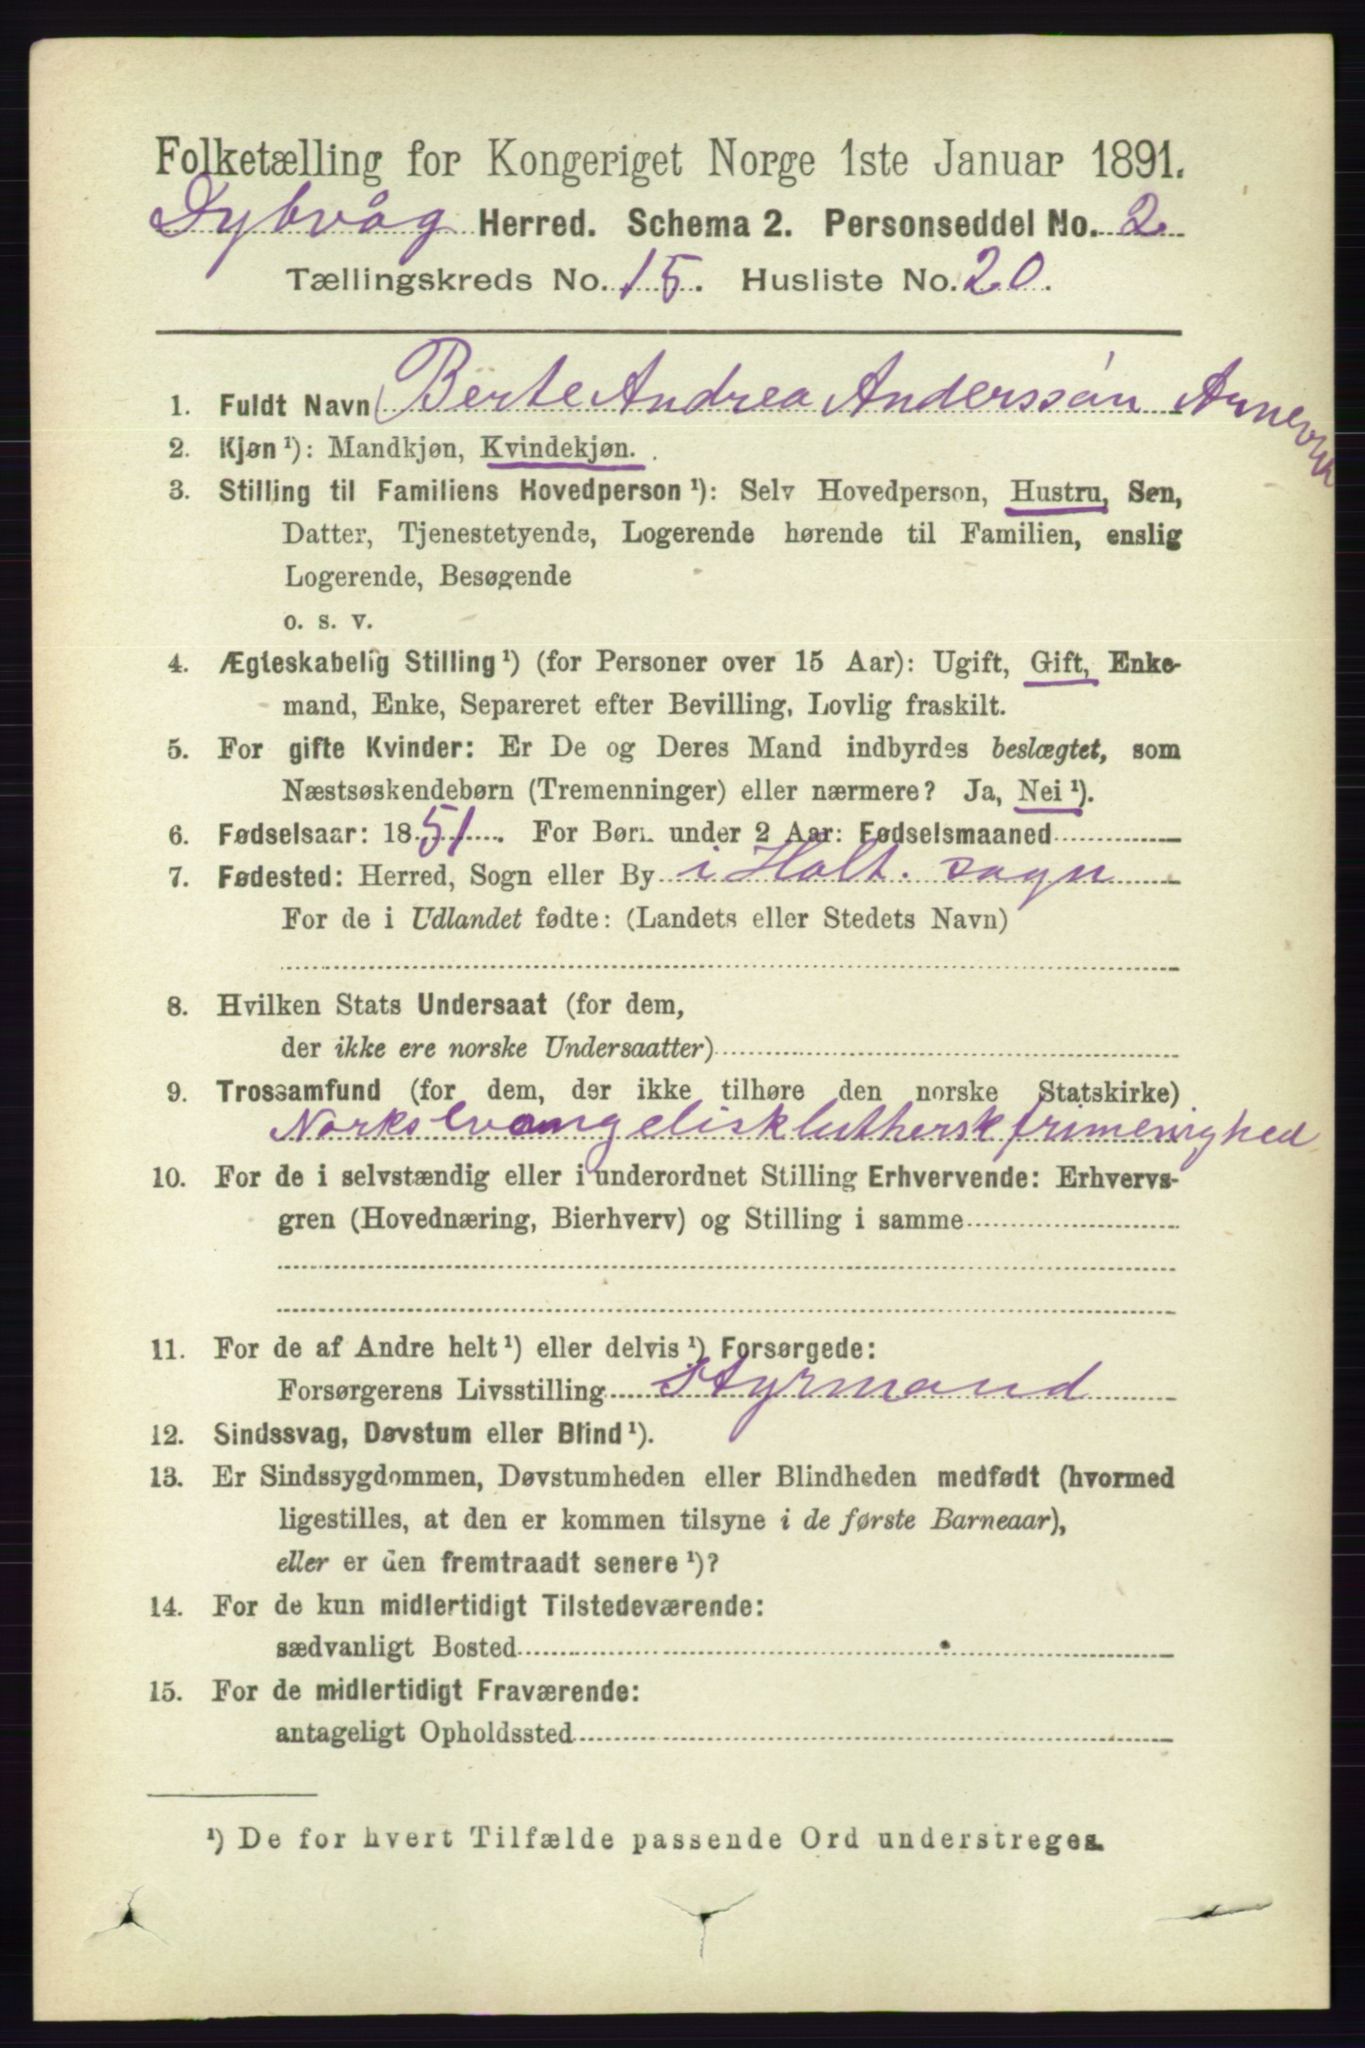 Folketælling for Kongeriget Norge 1ste Januar 1891.
Dybvåg Herred. Schema 2. Personseddel No. 2
Tællingskreds No. 15. Husliste No. 20.
1. Fuldt Navn Berte Andrea Anderssøn Arnevik
2. Kjøn ¹): Mandkjøn, Kvindekjøn.
3. Stilling til Familiens Hovedperson ¹): Selv Hovedperson, Hustru, Søn,
Datter, Tjenestetyende, Logerende hørende til Familien, enslig
Logerende, Besøgende
o. s. v.
4. Ægteskabelig Stilling ¹) (for Personer over 15 Aar): Ugift, Gift, Enke-
mand, Enke, Separeret efter Bevilling, Lovlig fraskilt.
5. For gifte Kvinder: Er De og Deres Mand indbyrdes beslægtet, som
Næstsøskendebørn (Tremenninger) eller nærmere? Ja, Nei ¹).
6. Fødselsaar: 1851. For Børn under 2 Aar: Fødselsmaaned
7. Fødested: Herred, Sogn eller By i Holt. sogn
For de i Udlandet fødte: (Landets eller Stedets Navn)
8. Hvilken Stats Undersaat (for dem,
der ikke ere norske Undersaatter)
9. Trossamfund (for dem, der ikke tilhøre den norske Statskirke)
Norks evangelisk luthersk frimenighed
10. For de i selvstændig eller i underordnet Stilling Erhvervende: Erhvervs-
gren (Hovednæring, Bierhverv) og Stilling i samme
11. For de af Andre helt ¹) eller delvis ¹) Forsørgede:
Forsørgerens Livsstilling Styrmand
12. Sindssvag, Døvstum eller Blind ¹).
13. Er Sindssygdommen, Døvstumheden eller Blindheden medfødt (hvormed
ligestilles, at den er kommen tilsyne i de første Barneaar),
eller er den fremtraadt senere ¹)?
14. For de kun midlertidigt Tilstedeværende:
sædvanligt Bosted
15. For de midlertidigt Fraværende:
antageligt Opholdssted
¹) De for hvert Tilfælde passende Ord understreges.